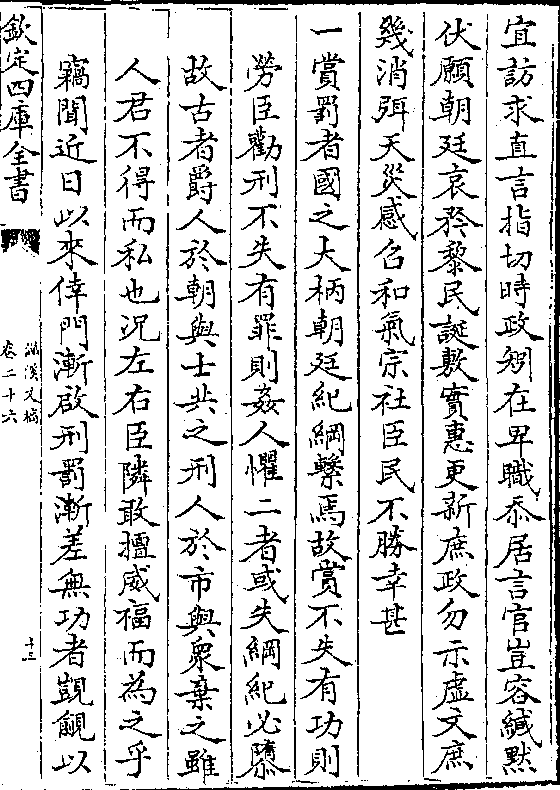 宜訪求直言指切時政矧在卑職忝居言官豈容緘黙
伏願朝廷哀矜黎民誕敷實惠更新庶政勿示虛文庶
幾消弭天災感召和氣宗社臣民不勝幸甚
一賞罰者國之大柄朝廷紀綱繫焉故賞不失有功則
勞臣勸刑不失有罪則姦人懼二者或失綱紀必隳
故古者爵人於朝與士共之刑人於市與衆棄之雖
人君不得而私也况左右臣隣敢擅威福而為之乎
竊聞近日以來倖門漸啟刑罰漸差無功者覬覦以
欽定四庫全書
文稿
卷二十六
十三